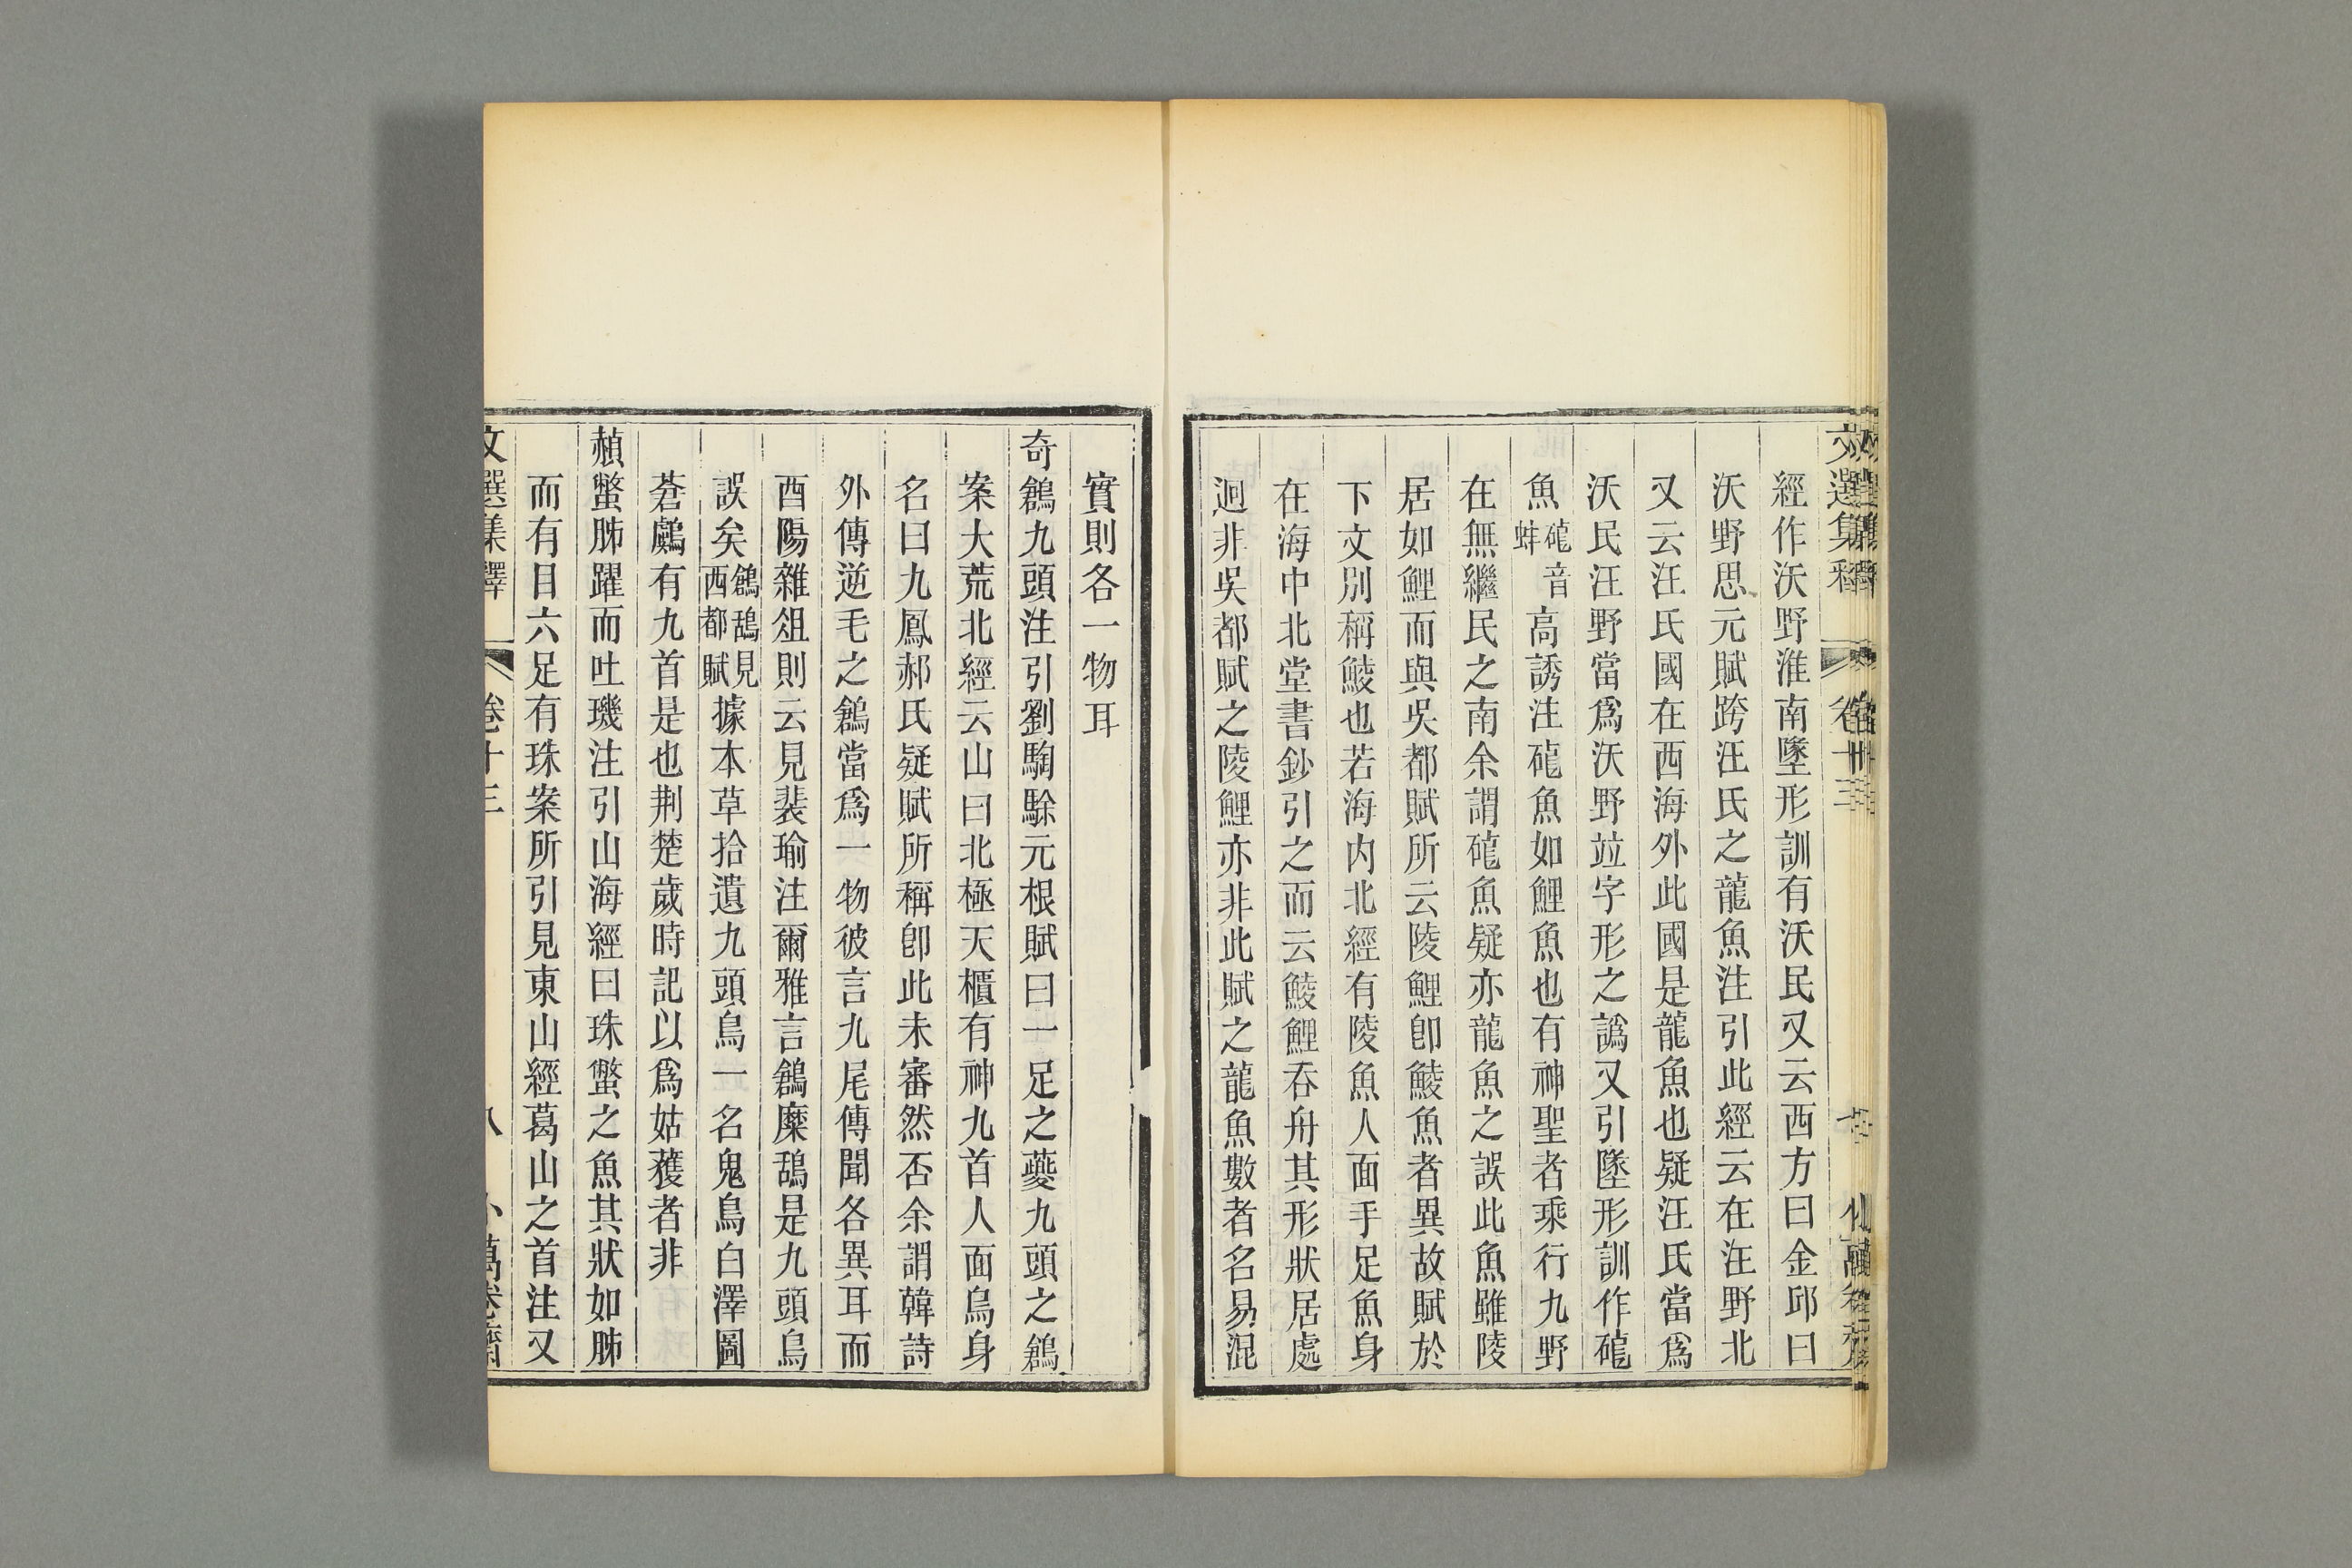 經作沃野淮南墬形訓有沃民又云西方曰金邱曰
沃野思元賦跨汪氏之龍魚注引此經云在汪野北
又云汪氏國在西海外此國是龍魚也疑汪氏當爲
沃民汪野當爲沃野竝字形之譌又引墬形訓作䃶
魚䃶音蚌高誘注䃶魚如鯉魚也有神聖者乘行九野
在無繼民之南余謂䃶魚疑亦龍魚之誤此魚雖陵
居如鯉而與吳都賦所云陵鯉卽鯪魚者異故賦於
下文別稱鯪也若海內北經有陵魚人面手足魚身
在海中北堂書鈔引之而云鯪鯉吞舟其形狀居處
迥非吳都賦之陵鯉亦非此賦之龍魚數者名易混
文選集釋 卷十三
實則各一物耳
奇鶬九頭注引劉騊駼元根賦曰一足之夔九頭之鶬
案大荒北經云山曰北極天櫃有神九首人面鳥身
名曰九鳳郝氏疑賦所稱卽此未審然否余謂韓詩
外傳逆毛之鶬當爲一物彼言九尾傳聞各異耳而
酉陽雜俎則云見裴瑜注爾雅言鶬麋鴰是九頭鳥
誤矣鶬鴰見西都賦據本草拾遺九頭鳥一名鬼鳥白澤圖
蒼鸆有九首是也荆楚歲時記以爲姑蒦者非
赬蟞胏躍而吐璣注引山海經曰珠蟞之魚其狀如胏
而有目六足有珠案所引見東山經葛山之首注又
文選集釋 卷十三 八 小萬卷齋